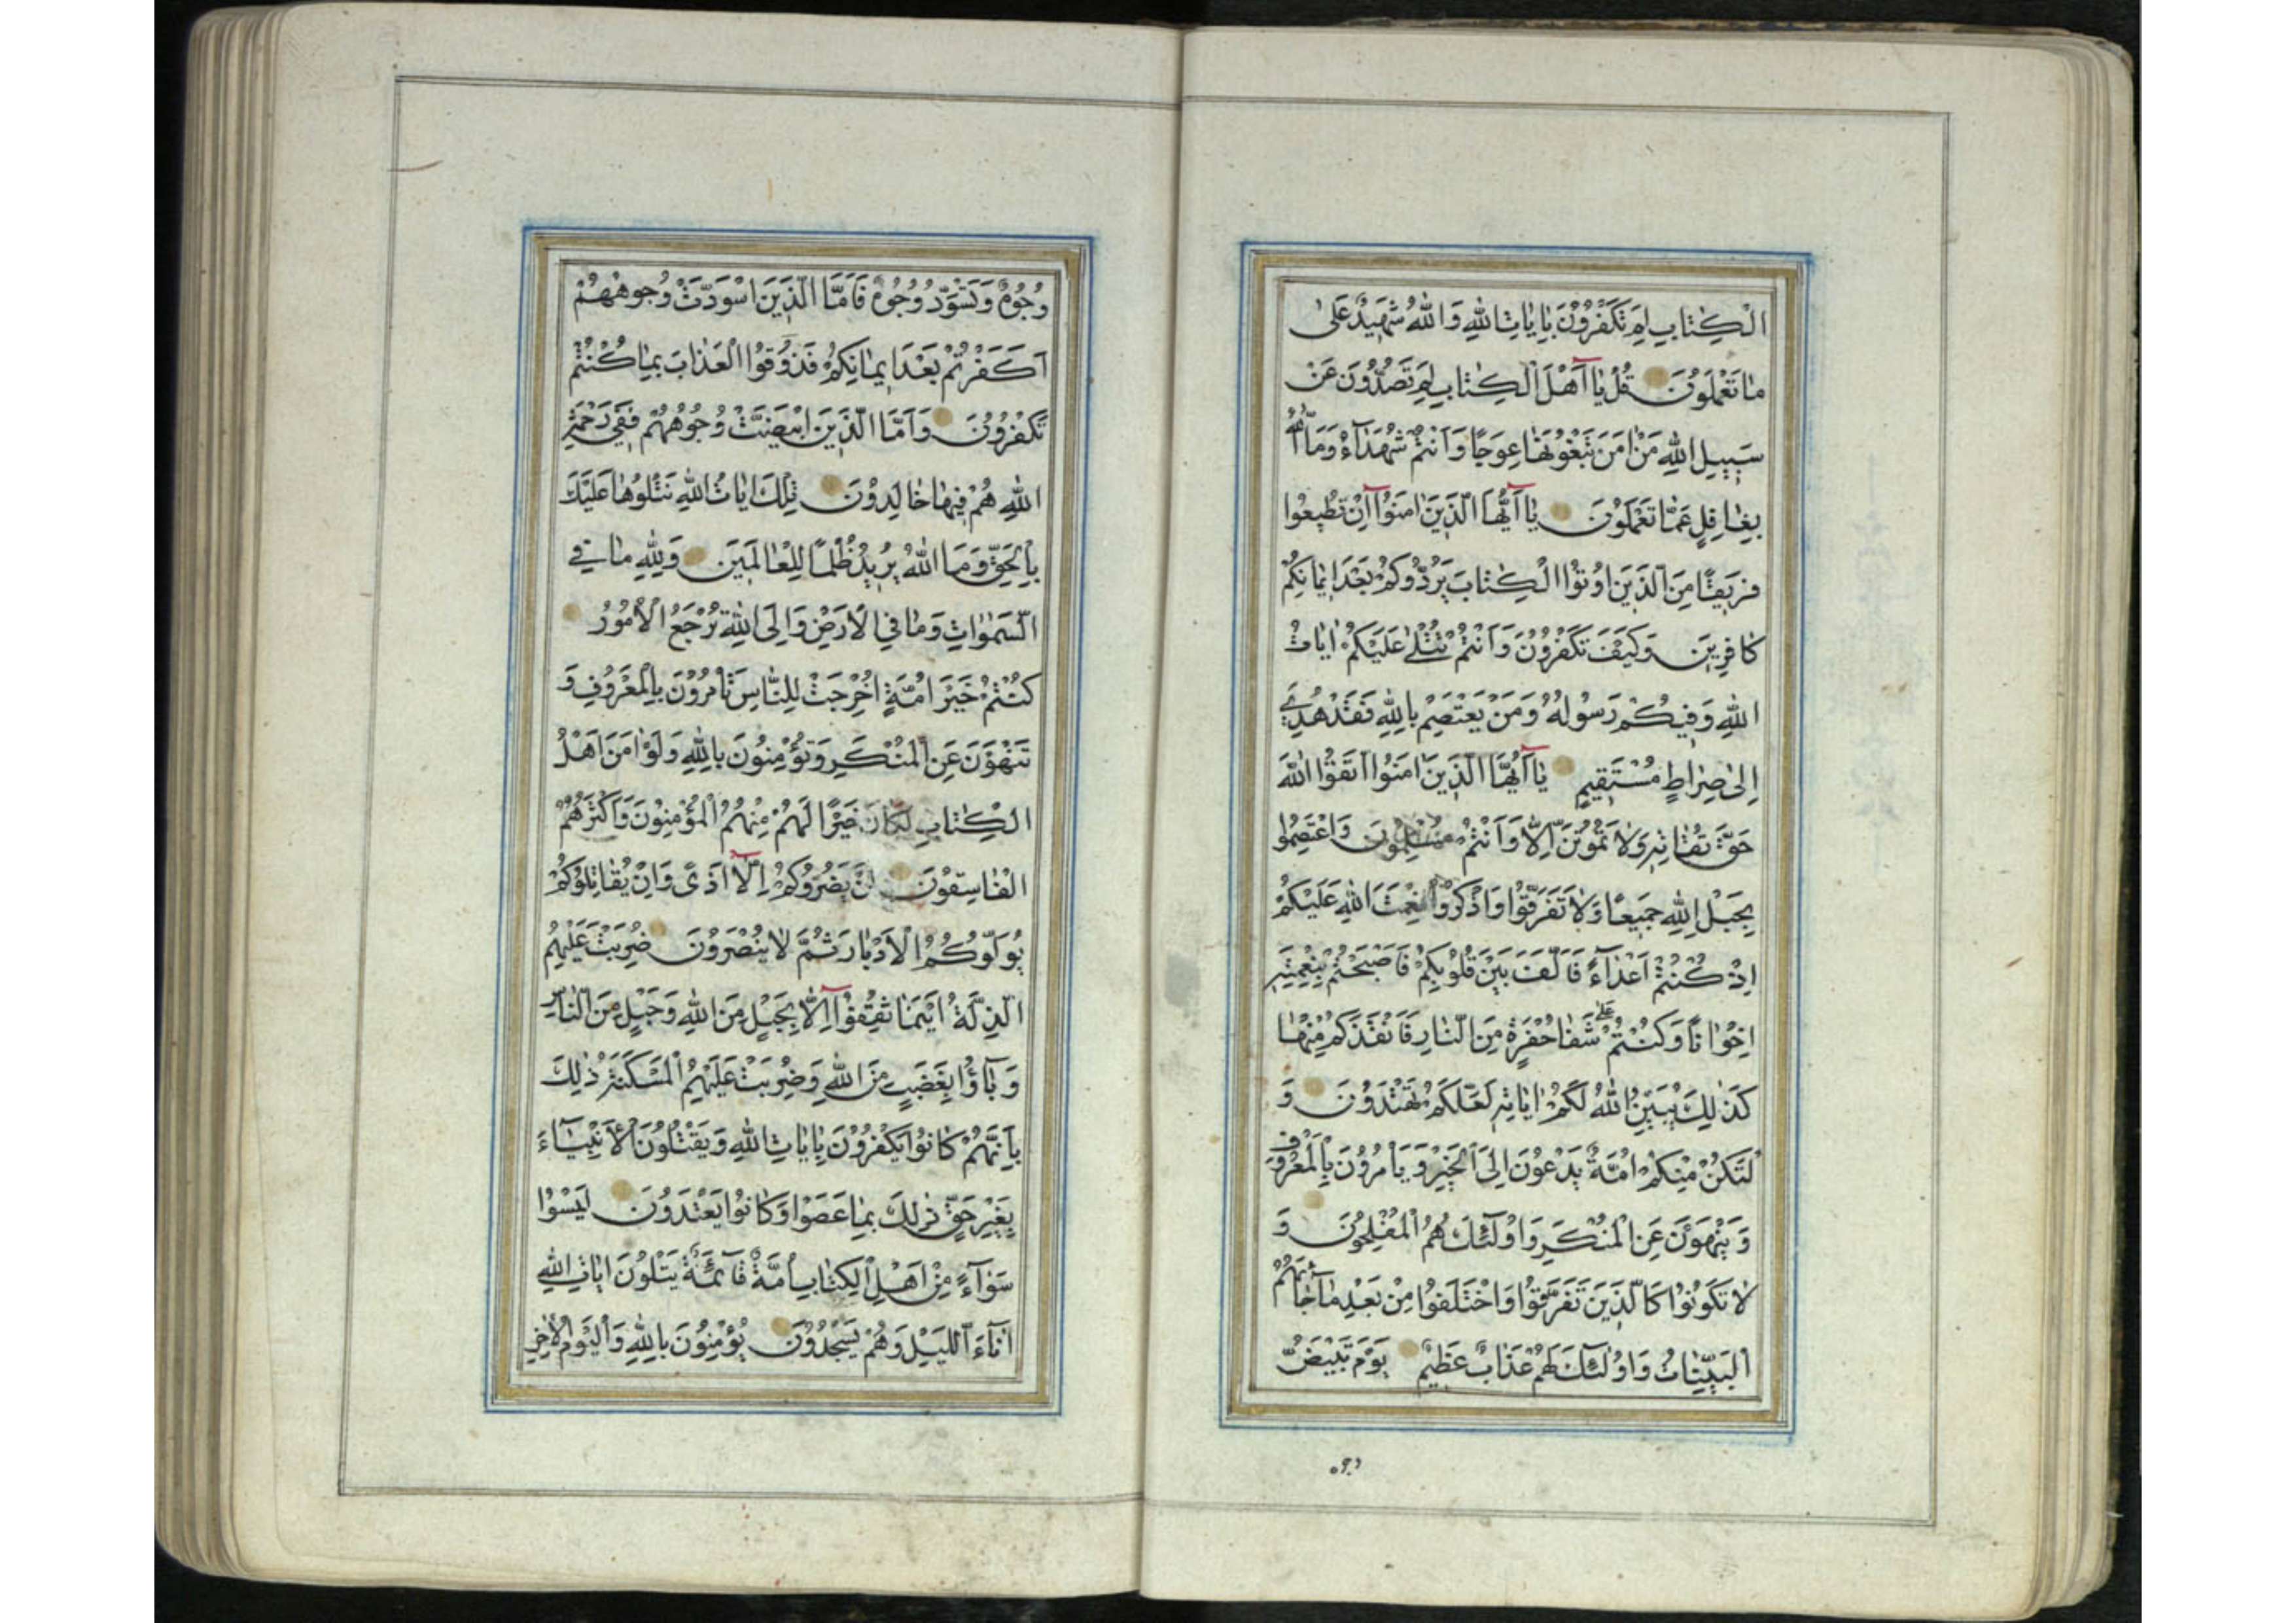 الْكِتَابِ لِمَ تَكْفُرُونَ بِاٰيَاتِ اللهِ وَاللهُ شَهِيدٌ عَلٰى
مَا تَعْمَلُونَ قُلْ يَا اَهْلَ الْكِتَابِ لِمَ تَصُدُّونَ عَنْ
سَبِيلِ اللهِ مَنْ اٰمَنَ تَبْغُونَهَا عِوَجًا وَاَنْتُمْ شُهَدَآءُ وَمَا اللهُ
بِغَافِلٍ عَمَّا تَعْمَلُونَ يَا اَيُّهَا الَّذِينَ اٰمَنُوا اِنْ تُطِيعُوا
فَرِيقًا مِنَ الَّذِينَ اُوتُوا الْكِتَابَ يَرُدُّوكُمْ بَعْدَ اِيمَانِكُمْ
كَافِرِينَ وَكَيْفَ تَكْفُرُونَ وَاَنْتُمْ تُتْلٰى عَلَيْكُمْ اٰيَاتُ
اللهِ وَفِيكُمْ رَسُولُهُ وَمَنْ يَعْتَصِمْ بِاللهِ فَقَدْ هُدِيَ
اِلٰى صِرَاطٍ مُسْتَقِيمٍ يَا اَيُّهَا الَّذِينَ اٰمَنُوا اتَّقُوا اللهَ
حَقَّ تُقَاتِهِ وَلَا تَمُوتُنَّ اِلَّا وَاَنْتُمْ مُسْلِمُونَ وَاعْتَصِمُوا
بِحَبْلِ اللهِ جَمِيعًا وَلَا تَفَرَّقُوا وَاذْكُرُوا نِعْمَتَ اللهِ عَلَيْكُمْ
اِذْ كُنْتُمْ اَعْدَآءً فَاَلَّفَ بَيْنَ قُلُوبِكُمْ فَاَصْبَحْتُمْ بِنِعْمَتِهِ
اِخْوَانًا وَكُنْتُمْ عَلٰى شَفَا حُفْرَةٍ مِنَ النَّارِ فَاَنْقَذَكُمْ مِنْهَا
كَذٰلِكَ يُبَيِّنُ اللهُ لَكُمْ اٰيَاتِهِ لَعَلَّكُمْ تَهْتَدُونَ وَ
لْتَكُنْ مِنْكُمْ اُمَّةٌ يَدْعُونَ اِلَى الْخَيْرِ وَيَاْمُرُونَ بِالْمَعْرُوفِ
وَيَنْهَوْنَ عَنِ الْمُنْكَرِ وَاُولٰٓئِكَ هُمُ الْمُفْلِحُونَ وَ
لَا تَكُونُوا كَالَّذِينَ تَفَرَّقُوا وَاخْتَلَفُوا مِنْ بَعْدِ مَا جَآءَهُمُ
الْبَيِّنَاتُ وَاُولٰٓئِكَ لَهُمْ عَذَابٌ عَظِيمٌ يَوْمَ تَبْيَضُّ
وُجُوهٌ وَتَسْوَدُّ وُجُوهٌ فَاَمَّا الَّذِينَ اسْوَدَّتْ وُجُوهُهُمْ
اَكَفَرْتُمْ بَعْدَ اِيمَانِكُمْ فَذُوقُوا الْعَذَابَ بِمَا كُنْتُمْ
تَكْفُرُونَ وَاَمَّا الَّذِينَ ابْيَضَّتْ وُجُوهُهُمْ فَفِي رَحْمَةِ
اللهِ هُمْ فِيهَا خَالِدُونَ تِلْكَ اٰيَاتُ اللهِ نَتْلُوهَا عَلَيْكَ
بِالْحَقِّ وَمَا اللهُ يُرِيدُ ظُلْمًا لِلْعَالَمِينَ وَلِلّٰهِ مَا فِي
السَّمٰوَاتِ وَمَا فِي الْاَرْضِ وَاِلَى اللهِ تُرْجَعُ الْاُمُورُ
كُنْتُمْ خَيْرَ اُمَّةٍ اُخْرِجَتْ لِلنَّاسِ تَاْمُرُونَ بِالْمَعْرُوفِ وَ
تَنْهَوْنَ عَنِ الْمُنْكَرِ وَتُؤْمِنُونَ بِاللهِ وَلَوْ اٰمَنَ اَهْلُ
الْكِتَابِ لَكَانَ خَيْرًا لَهُمْ مِنْهُمُ الْمُؤْمِنُونَ وَاَكْثَرُهُمُ
الْفَاسِقُونَ لَنْ يَضُرُّوكُمْ اِلَّا اَذًى وَاِنْ يُقَاتِلُوكُمْ
يُوَلُّوكُمُ الْاَدْبَارَ ثُمَّ لَا يُنْصَرُونَ ضُرِبَتْ عَلَيْهِمُ
الذِّلَّةُ اَيْنَمَا ثُقِفُوا اِلَّا بِحَبْلٍ مِنَ اللهِ وَحَبْلٍ مِنَ النَّاسِ
وَبَآؤُا بِغَضَبٍ مِنَ اللهِ وَضُرِبَتْ عَلَيْهِمُ الْمَسْكَنَةُ ذٰلِكَ
بِاَنَّهُمْ كَانُوا يَكْفُرُونَ بِاٰيَاتِ اللهِ وَيَقْتُلُونَ الْاَنْبِيَآءَ
بِغَيْرِ حَقٍّ ذٰلِكَ بِمَا عَصَوْا وَكَانُوا يَعْتَدُونَ لَيْسُوا
سَوَآءً مِنْ اَهْلِ الْكِتَابِ اُمَّةٌ قَآئِمَةٌ يَتْلُونَ اٰيَاتِ اللهِ
اٰنَآءَ اللَّيْلِ وَهُمْ يَسْجُدُونَ يُؤْمِنُونَ بِاللهِ وَالْيَوْمِ الْاٰخِرِ